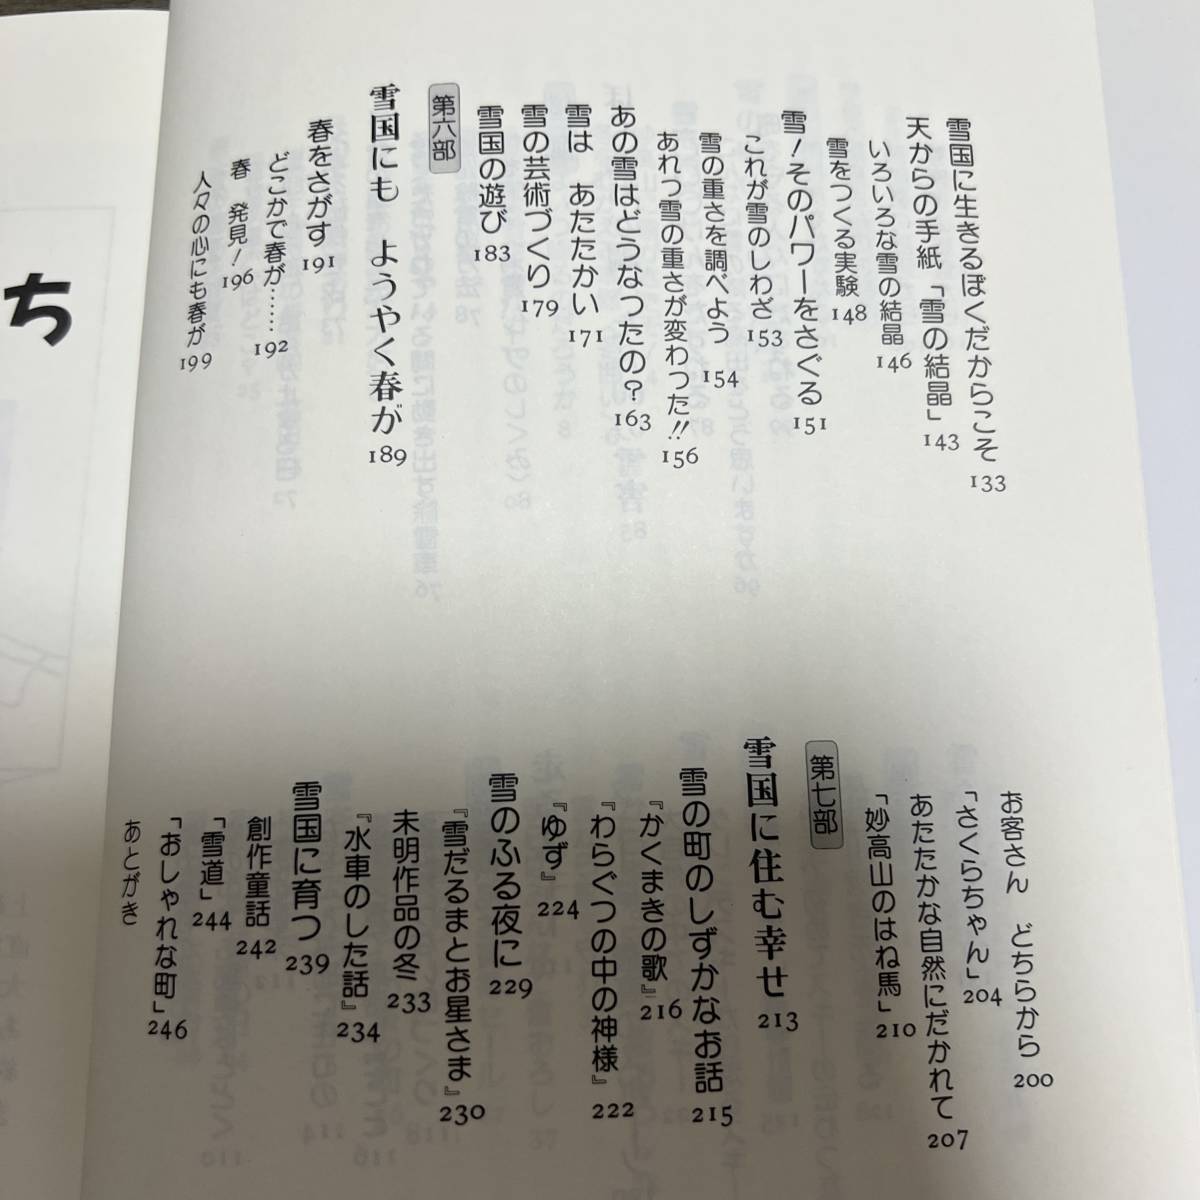 雪国に生きるぼくだからこそ 133
天からの手紙「雪の結晶」 143
いろいろな雪の結晶 146
雪をつくる実験 148
雪！そのパワーをさぐる 151
これが雪のしわざ 153
雪の重さを調べよう 154
あれっ雪の重さが変わった!! 156
あの雪はどうなったの？ 163
雪は あたたかい 171
雪の芸術づくり 179
雪国の遊び 183
第六部
雪国にも ようやく春が 189
春をさがす 191
どこかで春が…… 192
春 発見！ 196
人々の心にも春が 199
お客さん どちらから 200
「さくらちゃん」 204
あたたかな自然にだかれて 207
「妙高山のはね馬」 210
第七部
雪国に住む幸せ 213
雪の町のしずかなお話 215
『かくまきの歌』 216
『わらぐつの中の神様』 222
『ゆず』 224
雪のふる夜に 229
『雪だるまとお星さま』 230
未明作品の冬 233
『水車のした話』 234
雪国に育つ 239
創作童話 242
「雪道」 244
「おしゃれな町」 246
あとがき
ち